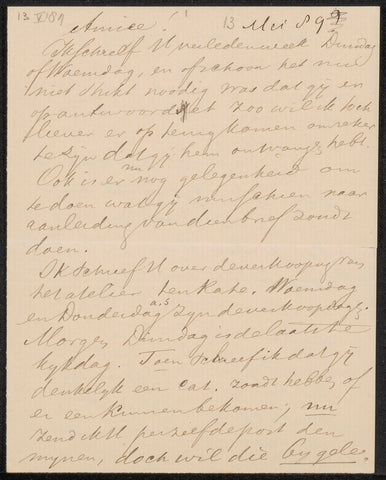 13 VI 89
13 Mei 89
Amice!
Ik schreef U verleden week Dinsdag
of Woensdag, en ofschoon het nu
niet strikt noodig was dat gij er
op antwoordet zoo wil ik toch
liever er op terugkomen om zeker
te zijn dat gij hem ontvangen hebt.
Ook is er nu nog gelegenheid om
te doen wat gij misschien naar
aanleiding van dien brief zoudt
doen.
Ik schreef U over de verkooping van
het atelier ten Kate. Woensdag
en Donderdag a.s. zijn de verkoopdagen,
Morgen Dinsdag is de laatste
kykdag. Toen schreef ik dat gij
denkelyk een cat. zoudt hebben, of
er een kunnen bekomen; nu
zend ik U per zelfde post den
mynen, doch wil die bygele-